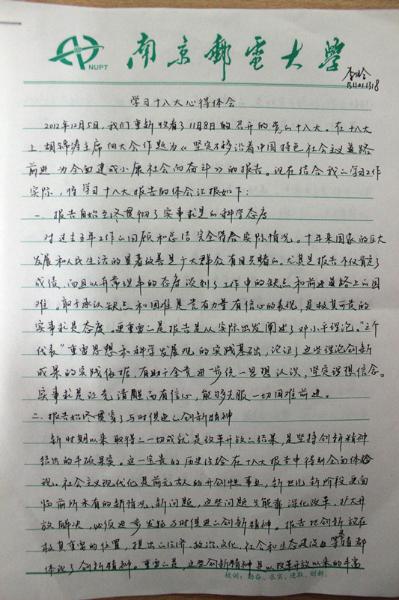 NUPT
南京邮电大学
学习十八大心得体会
2012年12月5日,我们重新收看了11月8日的召开的党的十八大。在十八大
上胡锦涛主席同大会作题为《坚定不移沿着中国特色社会主义道路
前进 为全面建成小康社会而奋斗》的报告。现在结合我的学习工作
实际,将学习十八大报告的体会汇报如下:
一、报告自始至终贯彻了实事求是的科学态度
对过去五年工作的回顾和总结完全符合实际情况。十年来国家的巨大
发展和人民生活的显著改善是广大群众有目共睹的。尤其是报告不仅肯定了
成绩,而且以非常坦率的态度谈到了工作中的缺点和前进道路上的困
难,敢于承认缺点和困难是党有力量有信心的表现,是极其可贵的
实事求是态度。更重要的是报告是从实际出发阐述了邓小平理论,"三个
代表"重要思想和科学发展观的实践基础,论证了这些理论创新
成果的实践依据,有助于全党进一步统一思想认识,坚定理想信念。
实事求是这充清醒而有信心,能够克服一切困难前进。
二、报告始终贯穿了与时俱进的创新精神
新时期以来取得的一切成就是改革开放的结果,是坚持创新精神
结出的丰硕果实。这一宝贵的历史经验在十八大报告中得到全面体
现。社会主义现代化是前无古人的开创性事业,新世纪新阶段更面
临前所未有的新情况、新问题,这些问题只能靠深化改革,扩大开
放解决,必须进一步发扬与时俱进的创新精神。报告把创新放在
极其重要的位置,提出的经济、政治、文化、社会和生态建设的举措都
体现了创新精神。重要的是,这些创新精神是以改革开放以来的丰富
校训:勤奋、求实、进取、创新